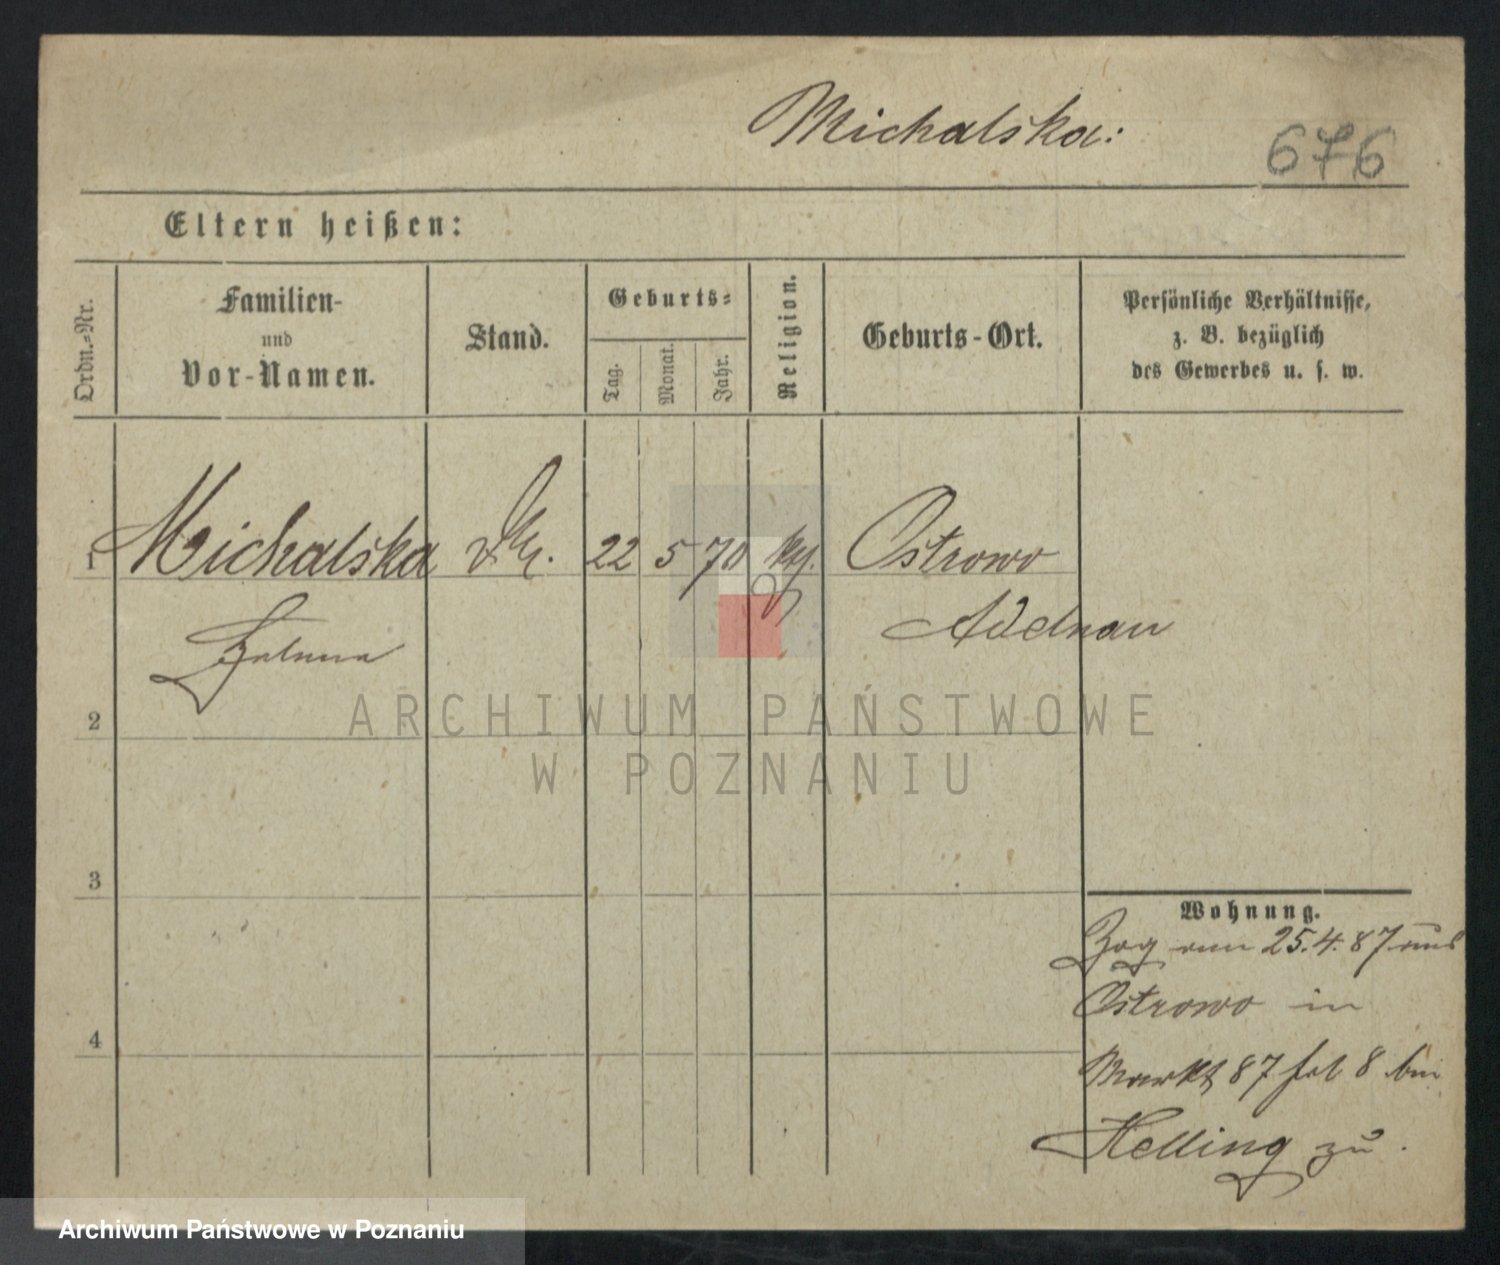 Michalska:
676
Eltern heißen:
Ordn.-Nr.
Familien-
und
Vor-Namen.
Stand.
Geburts-
Tag.
Monat.
Jahr.
Religion.
Geburts-Ort.
Persönliche Verhältnisse,
z. B. bezüglich
des Gewerbes u. s. w.
1
Michalska
22
5
70
Ostrowo
Adelnau
2
ARCHIWUM PAŃSTWOWE
W POZNANIU
3
Wohnung.
Zog am 25.4.87 aus
Ostrowo in
4
Markt 87 bei
Helling zu.
Archiwum Państwowe w Poznaniu